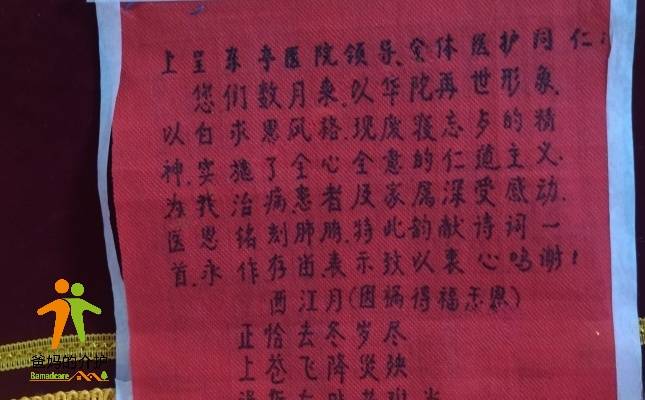 上呈东亭医院领导.全体医护同仁:
您们数月来.以华陀再世形象.
以白求恩风格.现废寝忘歺的精
神.实施了全心全意的仁道主义.
为我治病.患者及家属深受感动.
医恩铭刻肺腑.特此韵献诗词一
首.永作存留表示致以衷心鸣谢!
西江月(因祸得福志恩)
正恰去冬岁尽
上苍飞降灾殃
爸妈的介护
Bamadcare